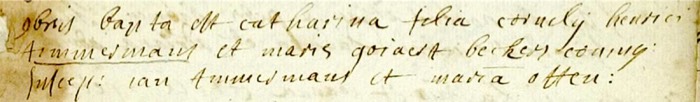 9bris bapta est catharina filia cornelij henrici
Timmermans et marie goiaert beckers coniug:
suscep: ian Timmermans et maria offen: